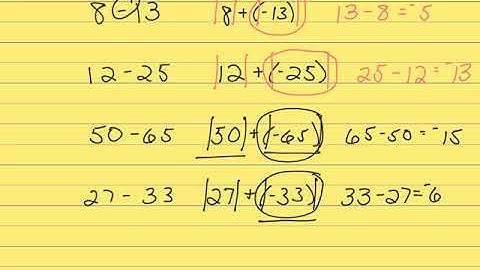 8 - 13 |8| + |(-13)| 13 - 8 = -5
12 - 25 |12| + |(-25)| 25 - 12 = -13
50 - 65 |50| + |(-65)| 65 - 50 = -15
27 - 33 |27| + |(-33)| 33 - 27 = -6